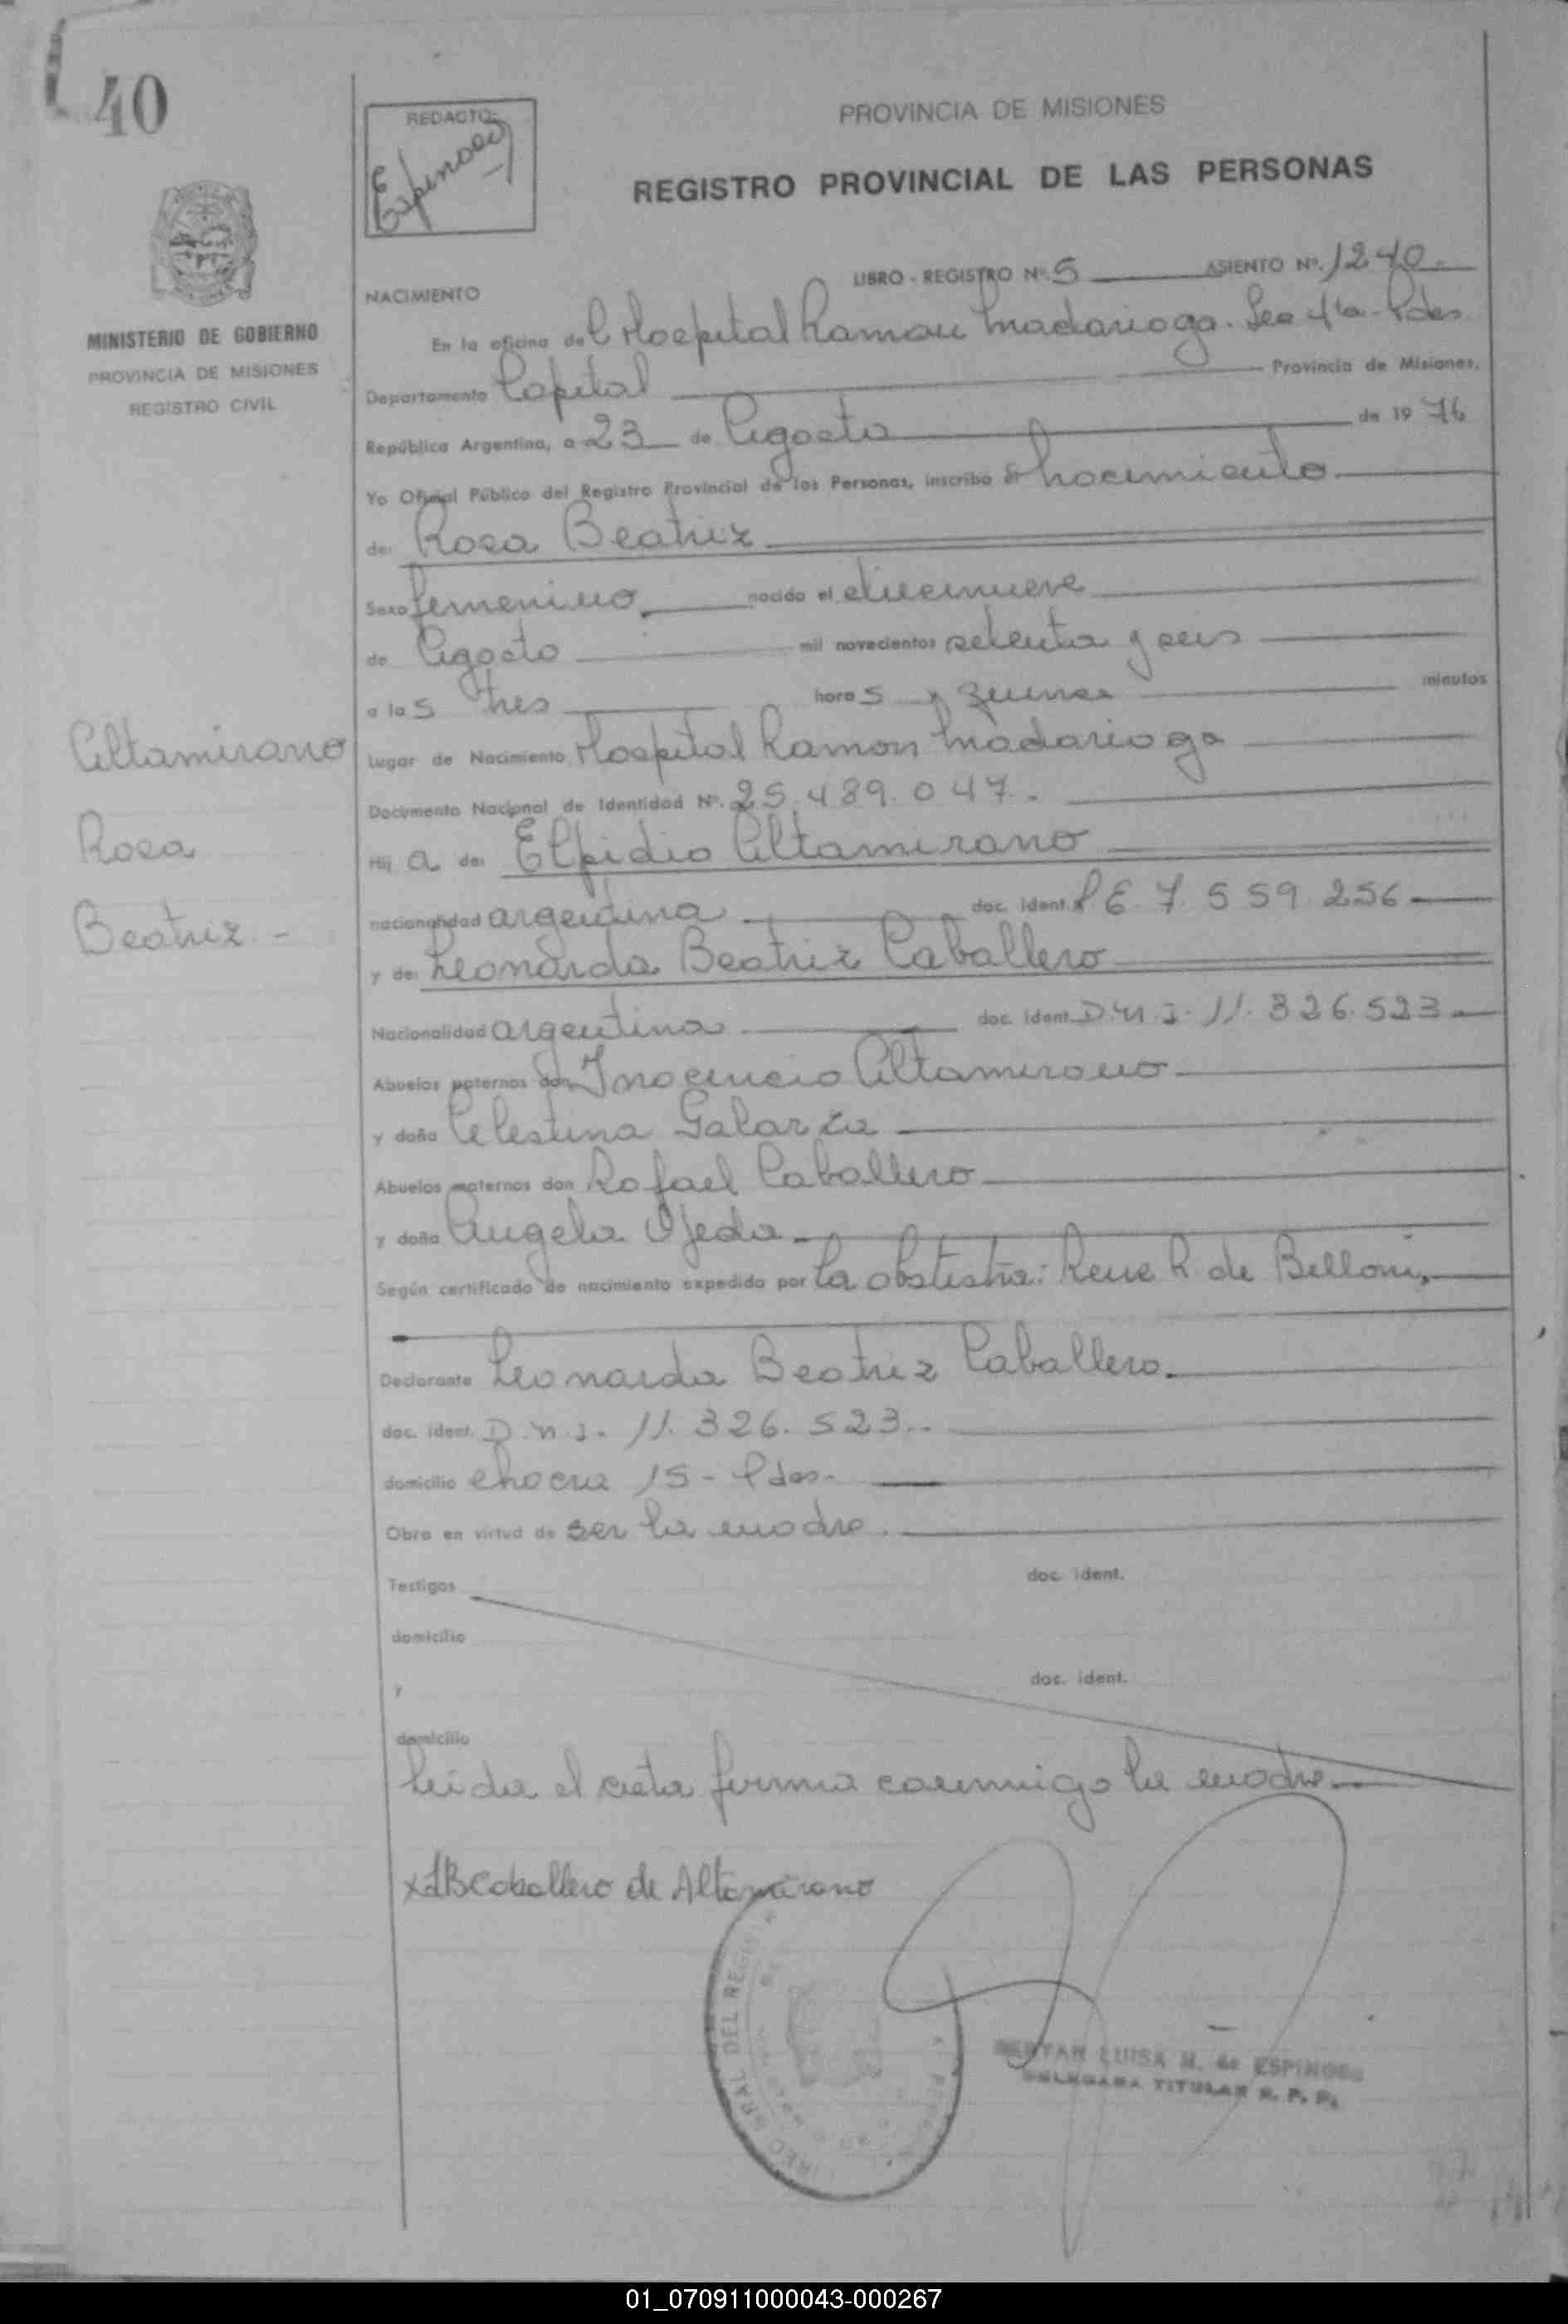 40
REDACTO:
Espinosa
PROVINCIA DE MISIONES
REGISTRO PROVINCIAL DE LAS PERSONAS
MINISTERIO DE GOBIERNO
PROVINCIA DE MISIONES
REGISTRO CIVIL
LIBRO - REGISTRO Nº. 5 ASIENTO Nº. 1240.
NACIMIENTO
En la oficina del Hospital Ramon Madariaga. Sec 4ta - Pdas
Departamento Capital Provincia de Misiones,
República Argentina, a 23 de Agosto de 1976
Yo Oficial Público del Registro Provincial de las Personas, inscribo el nacimiento
de: Rosa Beatriz
Sexo femenino nacido el diecinueve
de Agosto mil novecientos setenta y seis
a las tres horas y quince minutos
Lugar de Nacimiento Hospital Ramon Madariaga
Documento Nacional de Identidad Nº. 25.489.047.
Hija de: Elpidio Altamirano
nacionalidad argentina doc. ident. LE 7 559 256
y de: Leonarda Beatriz Caballero
Nacionalidad argentina doc. ident. D.N.I. 11.326.523
Abuelos paternos don Inocencio Altamirano
y doña Celestina Galarza
Abuelos maternos don Rafael Caballero
y doña Angela Ojeda
Según certificado de nacimiento expedido por la obstetra: Rene R. de Belloni,
Declarante Leonarda Beatriz Caballero.
doc. ident. D.N.I. 11.326.523..
domicilio chacra 15 - Pdas.
Obra en virtud de ser la madre.
Testigos doc. ident.
domicilio
y doc. ident.
domicilio
Leida el acta firma conmigo la madre
x LBCaballero de Altamirano
LUISA M. de ESPINOSA
DELEGADA TITULAR R. P. P.
Altamirano
Rosa
Beatriz. -
01_070911000043-000267